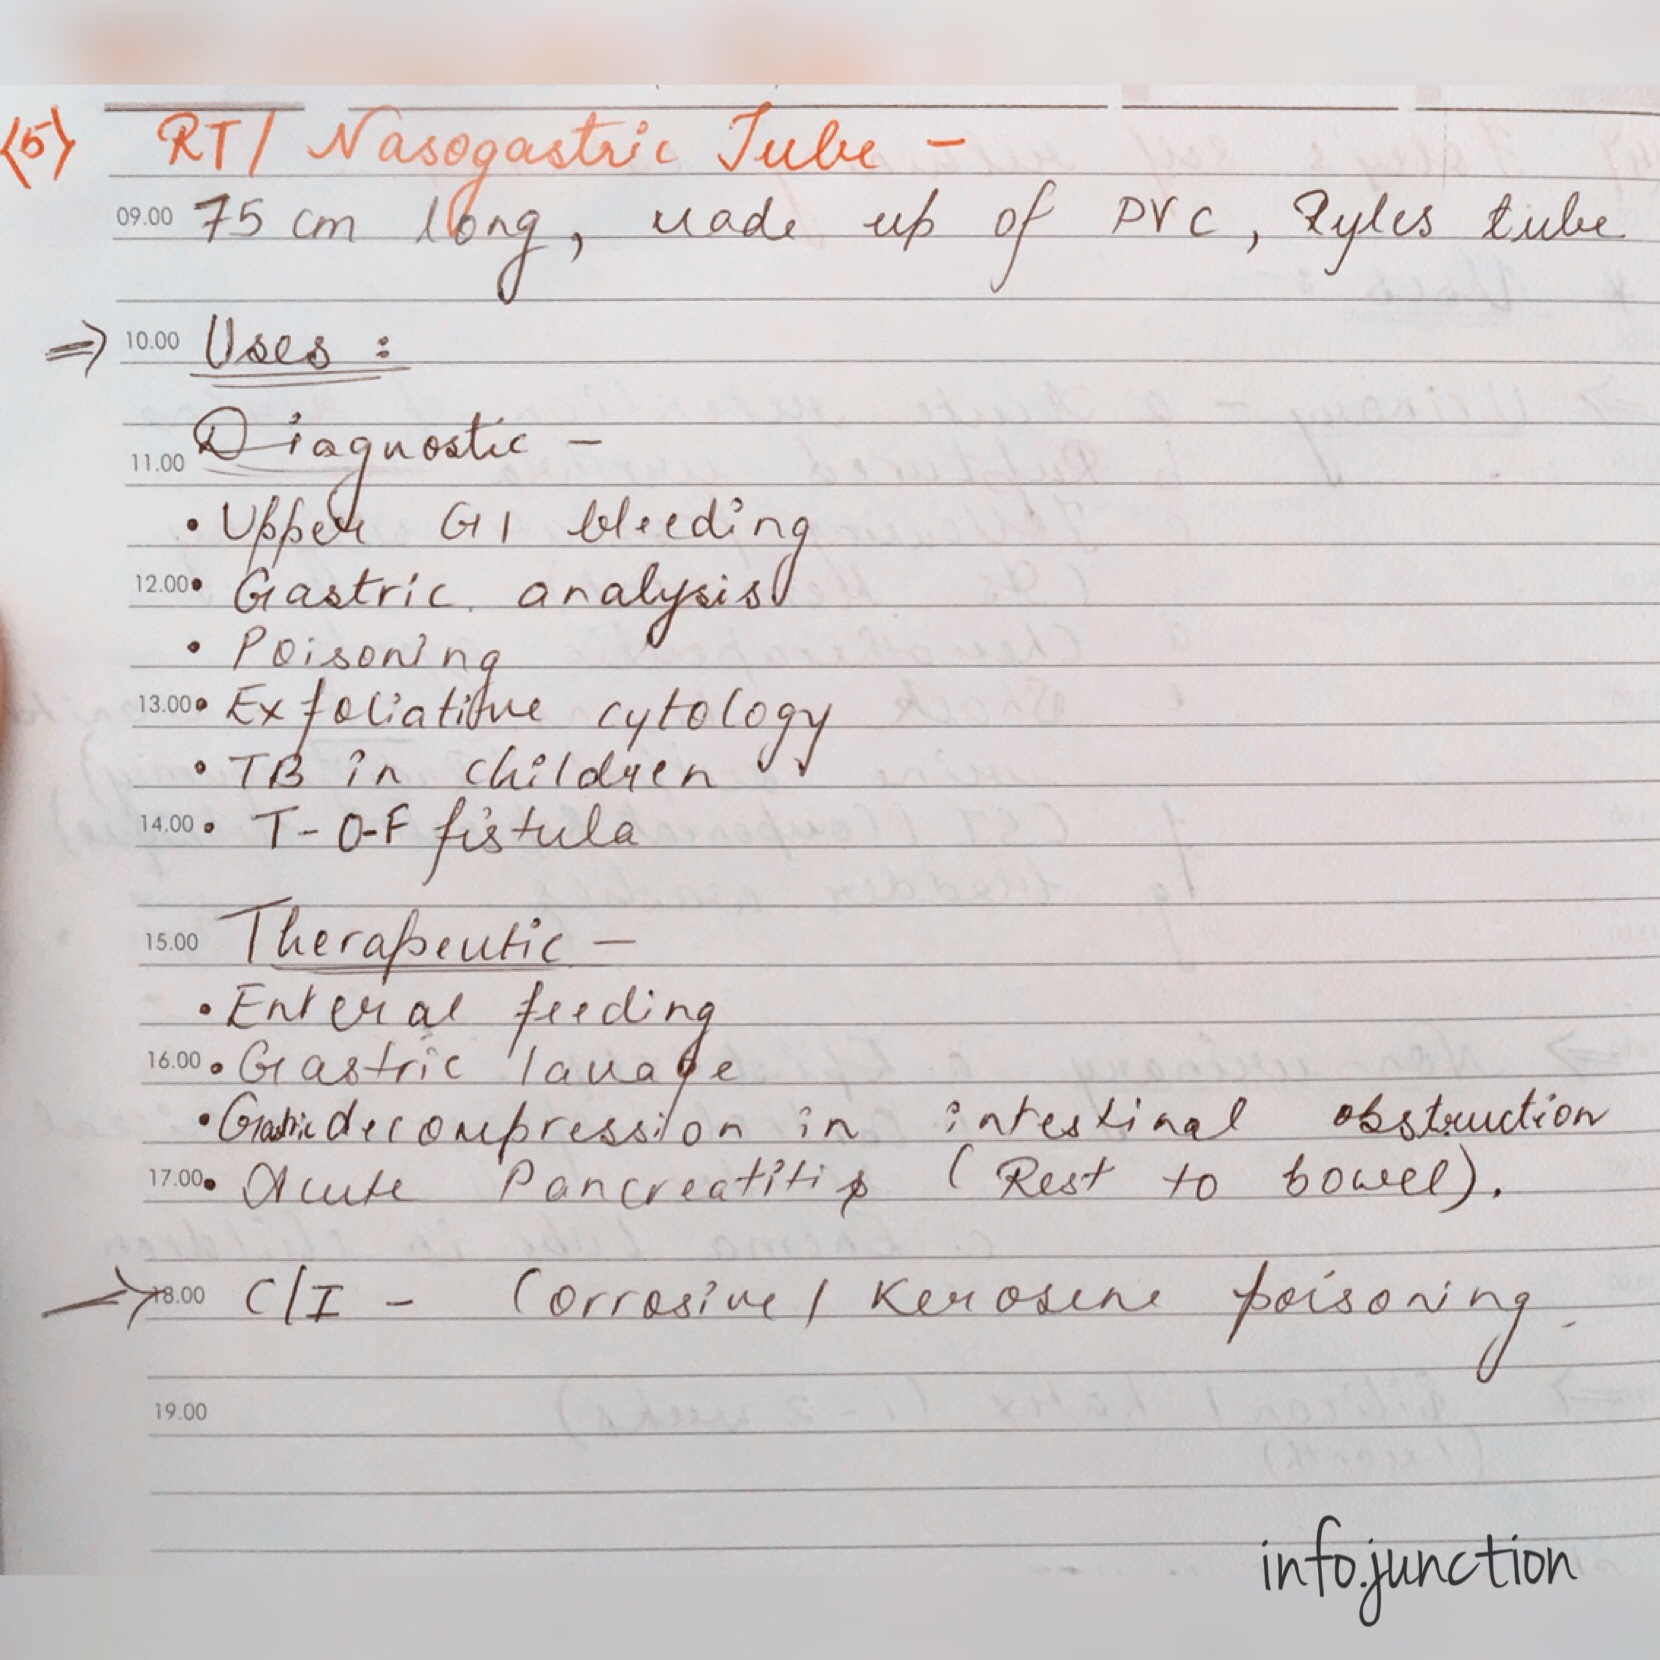 <5> RT/ Nasogastric Tube -
09.00 75 cm long, made up of PVC, Ryles tube
⇒ 10.00 Uses :
Diagnostic -
11.00
• Upper GI bleeding
12.00 • Gastric analysis
• Poisoning
13.00 • Exfoliative cytology
• TB in children
14.00 • T-O-F fistula
15.00 Therapeutic -
• Enteral feeding
16.00 • Gastric lavage
• Gastric decompression in intestinal obstruction
17.00 • Acute Pancreatitis (Rest to bowel).
→ 18.00 C/I - Corrosive / Kerosene poisoning
19.00
info.junction